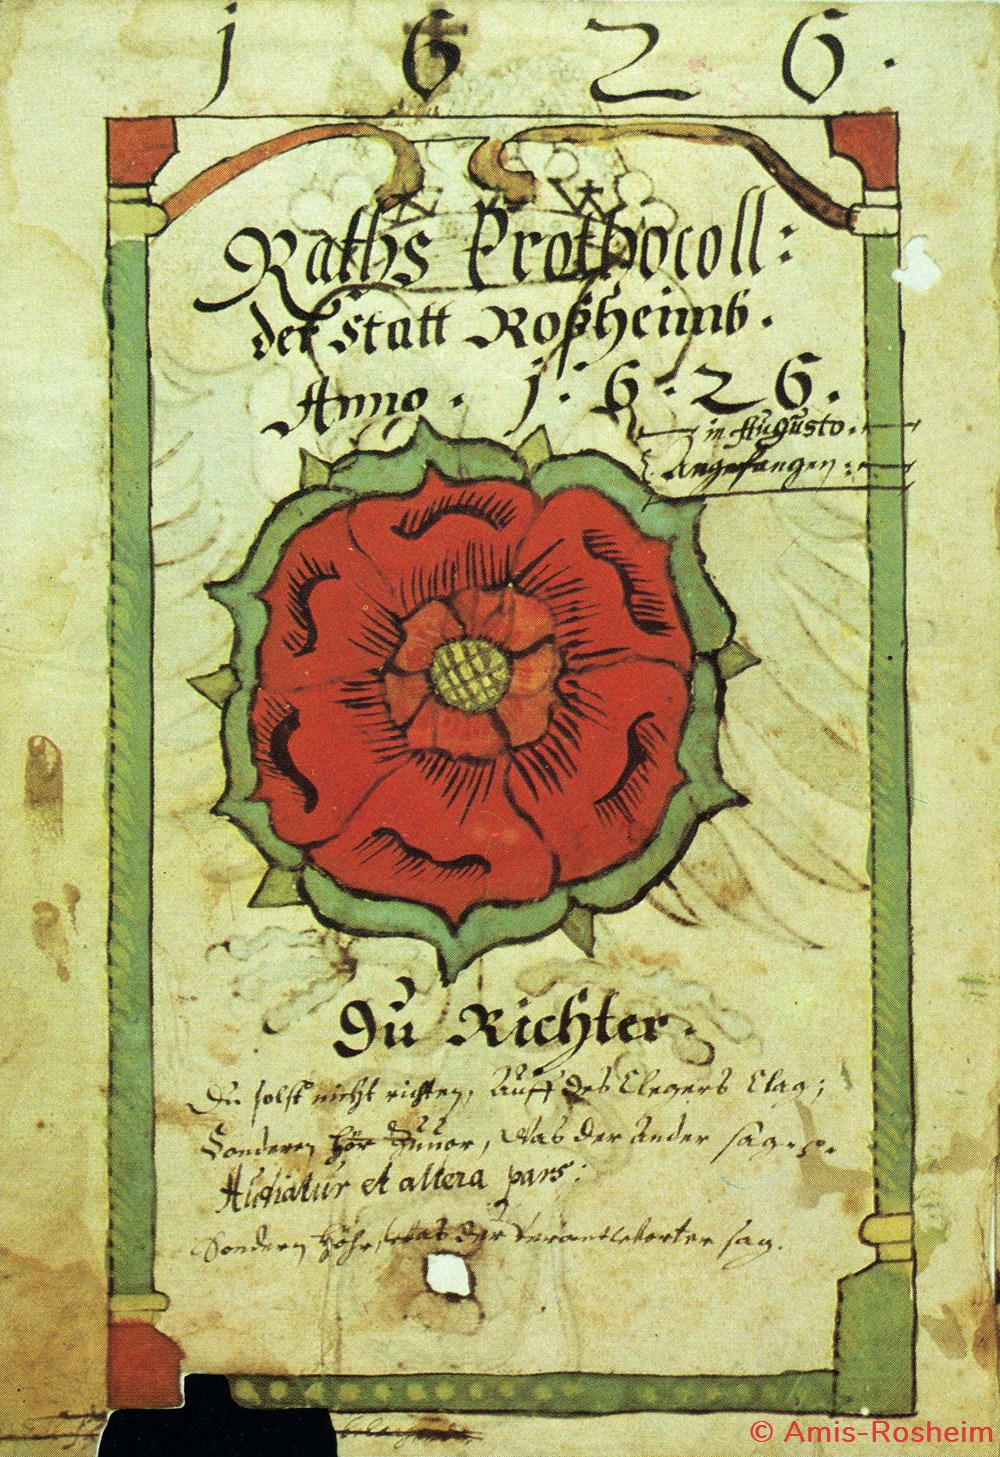 1 6 2 6.
Raths Prothocoll:
der Statt Roßheimb.
Anno. 1.6.26.
in Augusto.
Angefangen:
Du Richter.
Du solst nicht richten, Auff des Clegers Clag;
Sonderen hör Zuuor, Was der Ander sag.
Audiatur et altera pars:
Sondern Höhr, was der sag.
© Amis-Rosheim